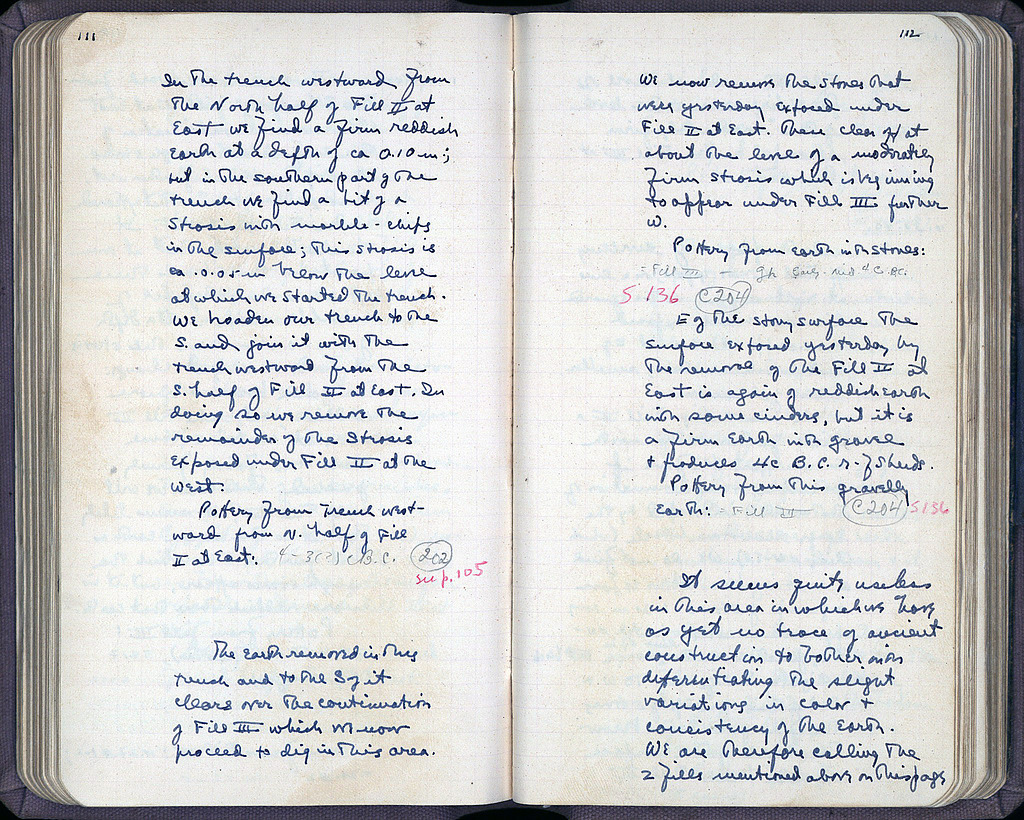 111
In the trench westward from
the North half of Fill II at
East we find a firm reddish
Earth at a depth of ca 0.10 m;
but in the southern part of the
trench we find a bit of a
Strosis with marble-chips
in the surface; this strosis is
ca. 0.05 m below the level
at which we started the trench.
We broaden our trench to the
S. and join it with the
trench westward from the
S. half of Fill II at East. In
doing so we remove the
remainder of the Strosis
Exposed under Fill II at the
West.
Pottery from trench west-
ward from N. half of Fill
II at East. 4-3(?) c B.C. 202
See p. 105
The Earth removed in this
trench and to the S of it
clears over the continuation
of Fill III which we now
proceed to dig in this area.
112
We now remove the stones that
were yesterday exposed under
Fill II at East. These clear off at
about the level of a moderately
firm strosis which is beginning
to appear under Fill III further
W.
Pottery from earth with stones:
Fill III - Early - mid 4 C. B.C.
S 136 C204
E of the stony surface the
surface exposed yesterday by
the removal of the Fill II at
East is again of reddish earth
with some cinders, but it is
a firm Earth with gravel
+ produces 4c B.C. r-f sherds.
Pottery from this gravelly
Earth: - Fill III - C204 S136
It seems quite useless
in this area in which we have
as yet no trace of ancient
construction to bother with
differentiating the slight
variations in color +
consistency of the Earth.
We are therefore calling the
2 fills mentioned above on this page